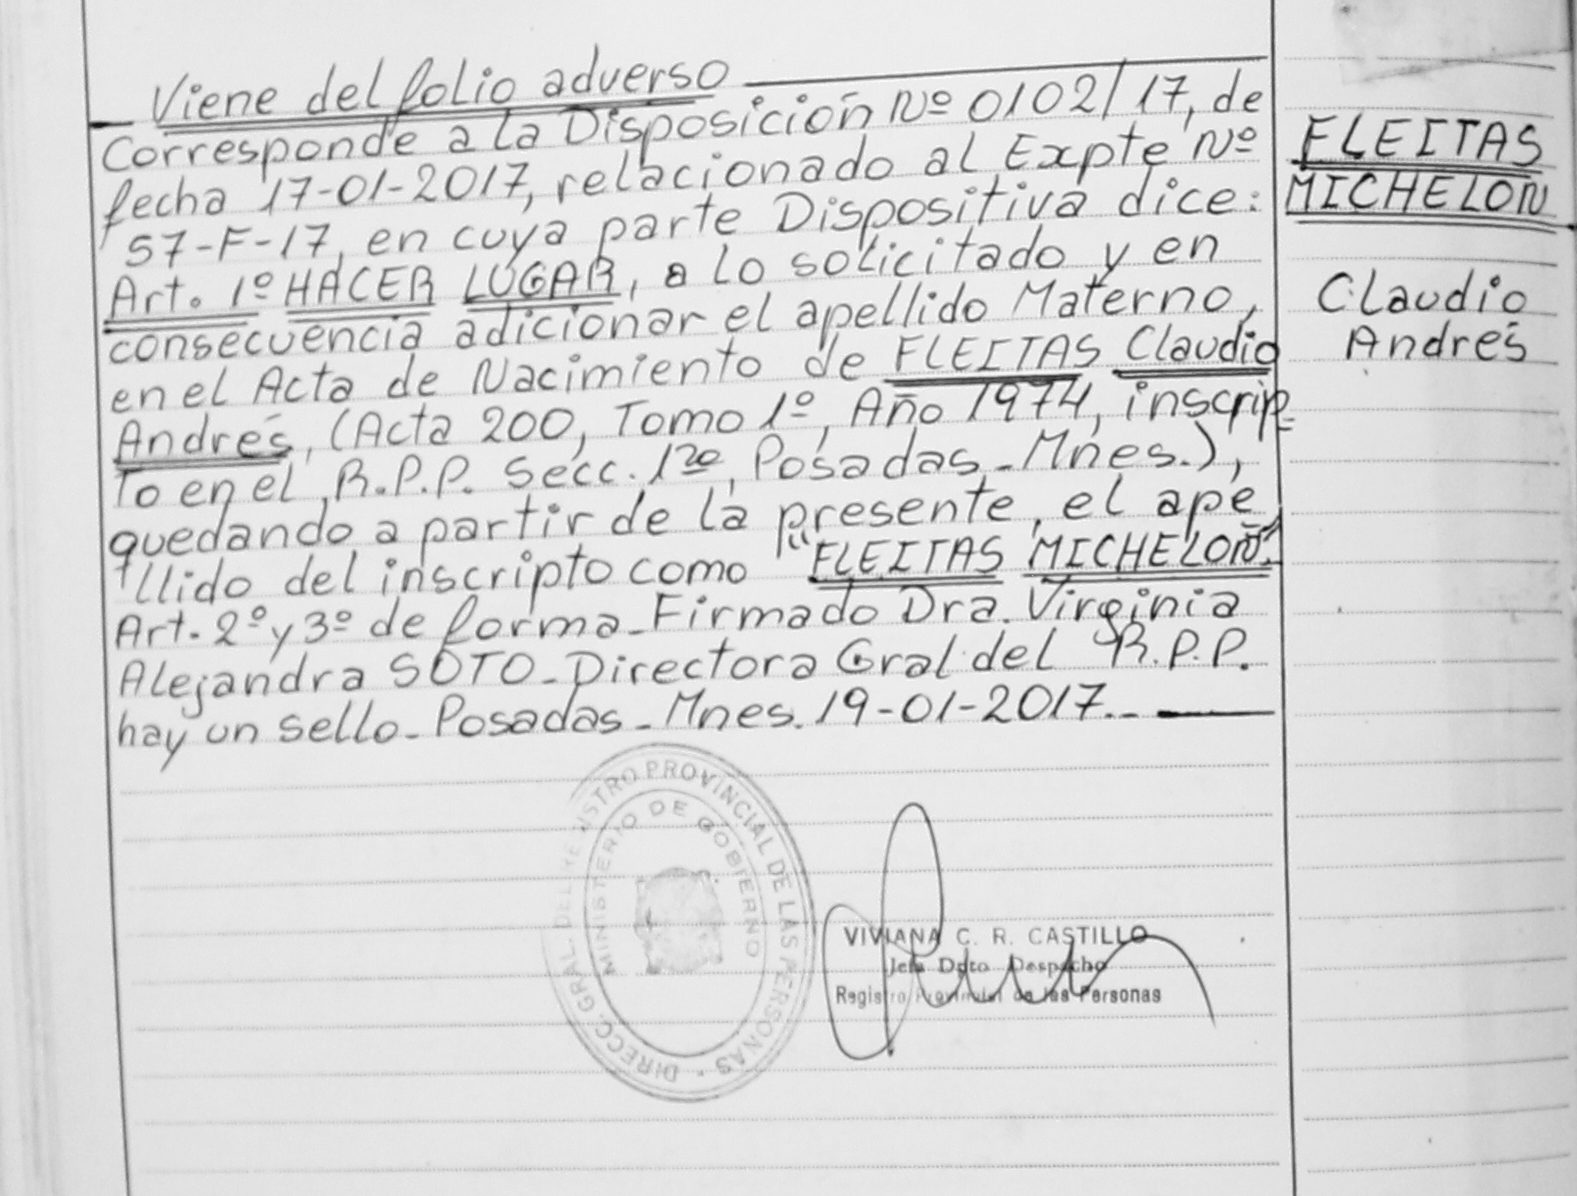 Viene del folio adverso
Corresponde a la Disposición Nº 0102/17, de
fecha 17-01-2017, relacionado al Expte Nº
57-F-17, en cuya parte Dispositiva dice:
Art. 1º HACER LUGAR, a lo solicitado y en
consecuencia adicionar el apellido Materno,
en el Acta de Nacimiento de FLEITAS Claudio
Andrés, (Acta 200, Tomo 1º, Año 1974, inscrip-
to en el R.P.P. Secc. 1ra, Posadas - Mnes.),
quedando a partir de la presente, el ape
llido del inscripto como "FLEITAS MICHELON".
Art. 2º y 3º de forma - Firmado Dra. Virginia
Alejandra SOTO - Directora Gral del R.P.P.
hay un sello - Posadas - Mnes. 19-01-2017.-
FLEITAS
MICHELON
Claudio
Andrés
DIRECC. GRAL. DEL REGISTRO PROVINCIAL DE LAS PERSONAS
MINISTERIO DE GOBIERNO
VIVIANA C. R. CASTILLO
Jefa Dpto Despacho
Registro Provincial de las Personas